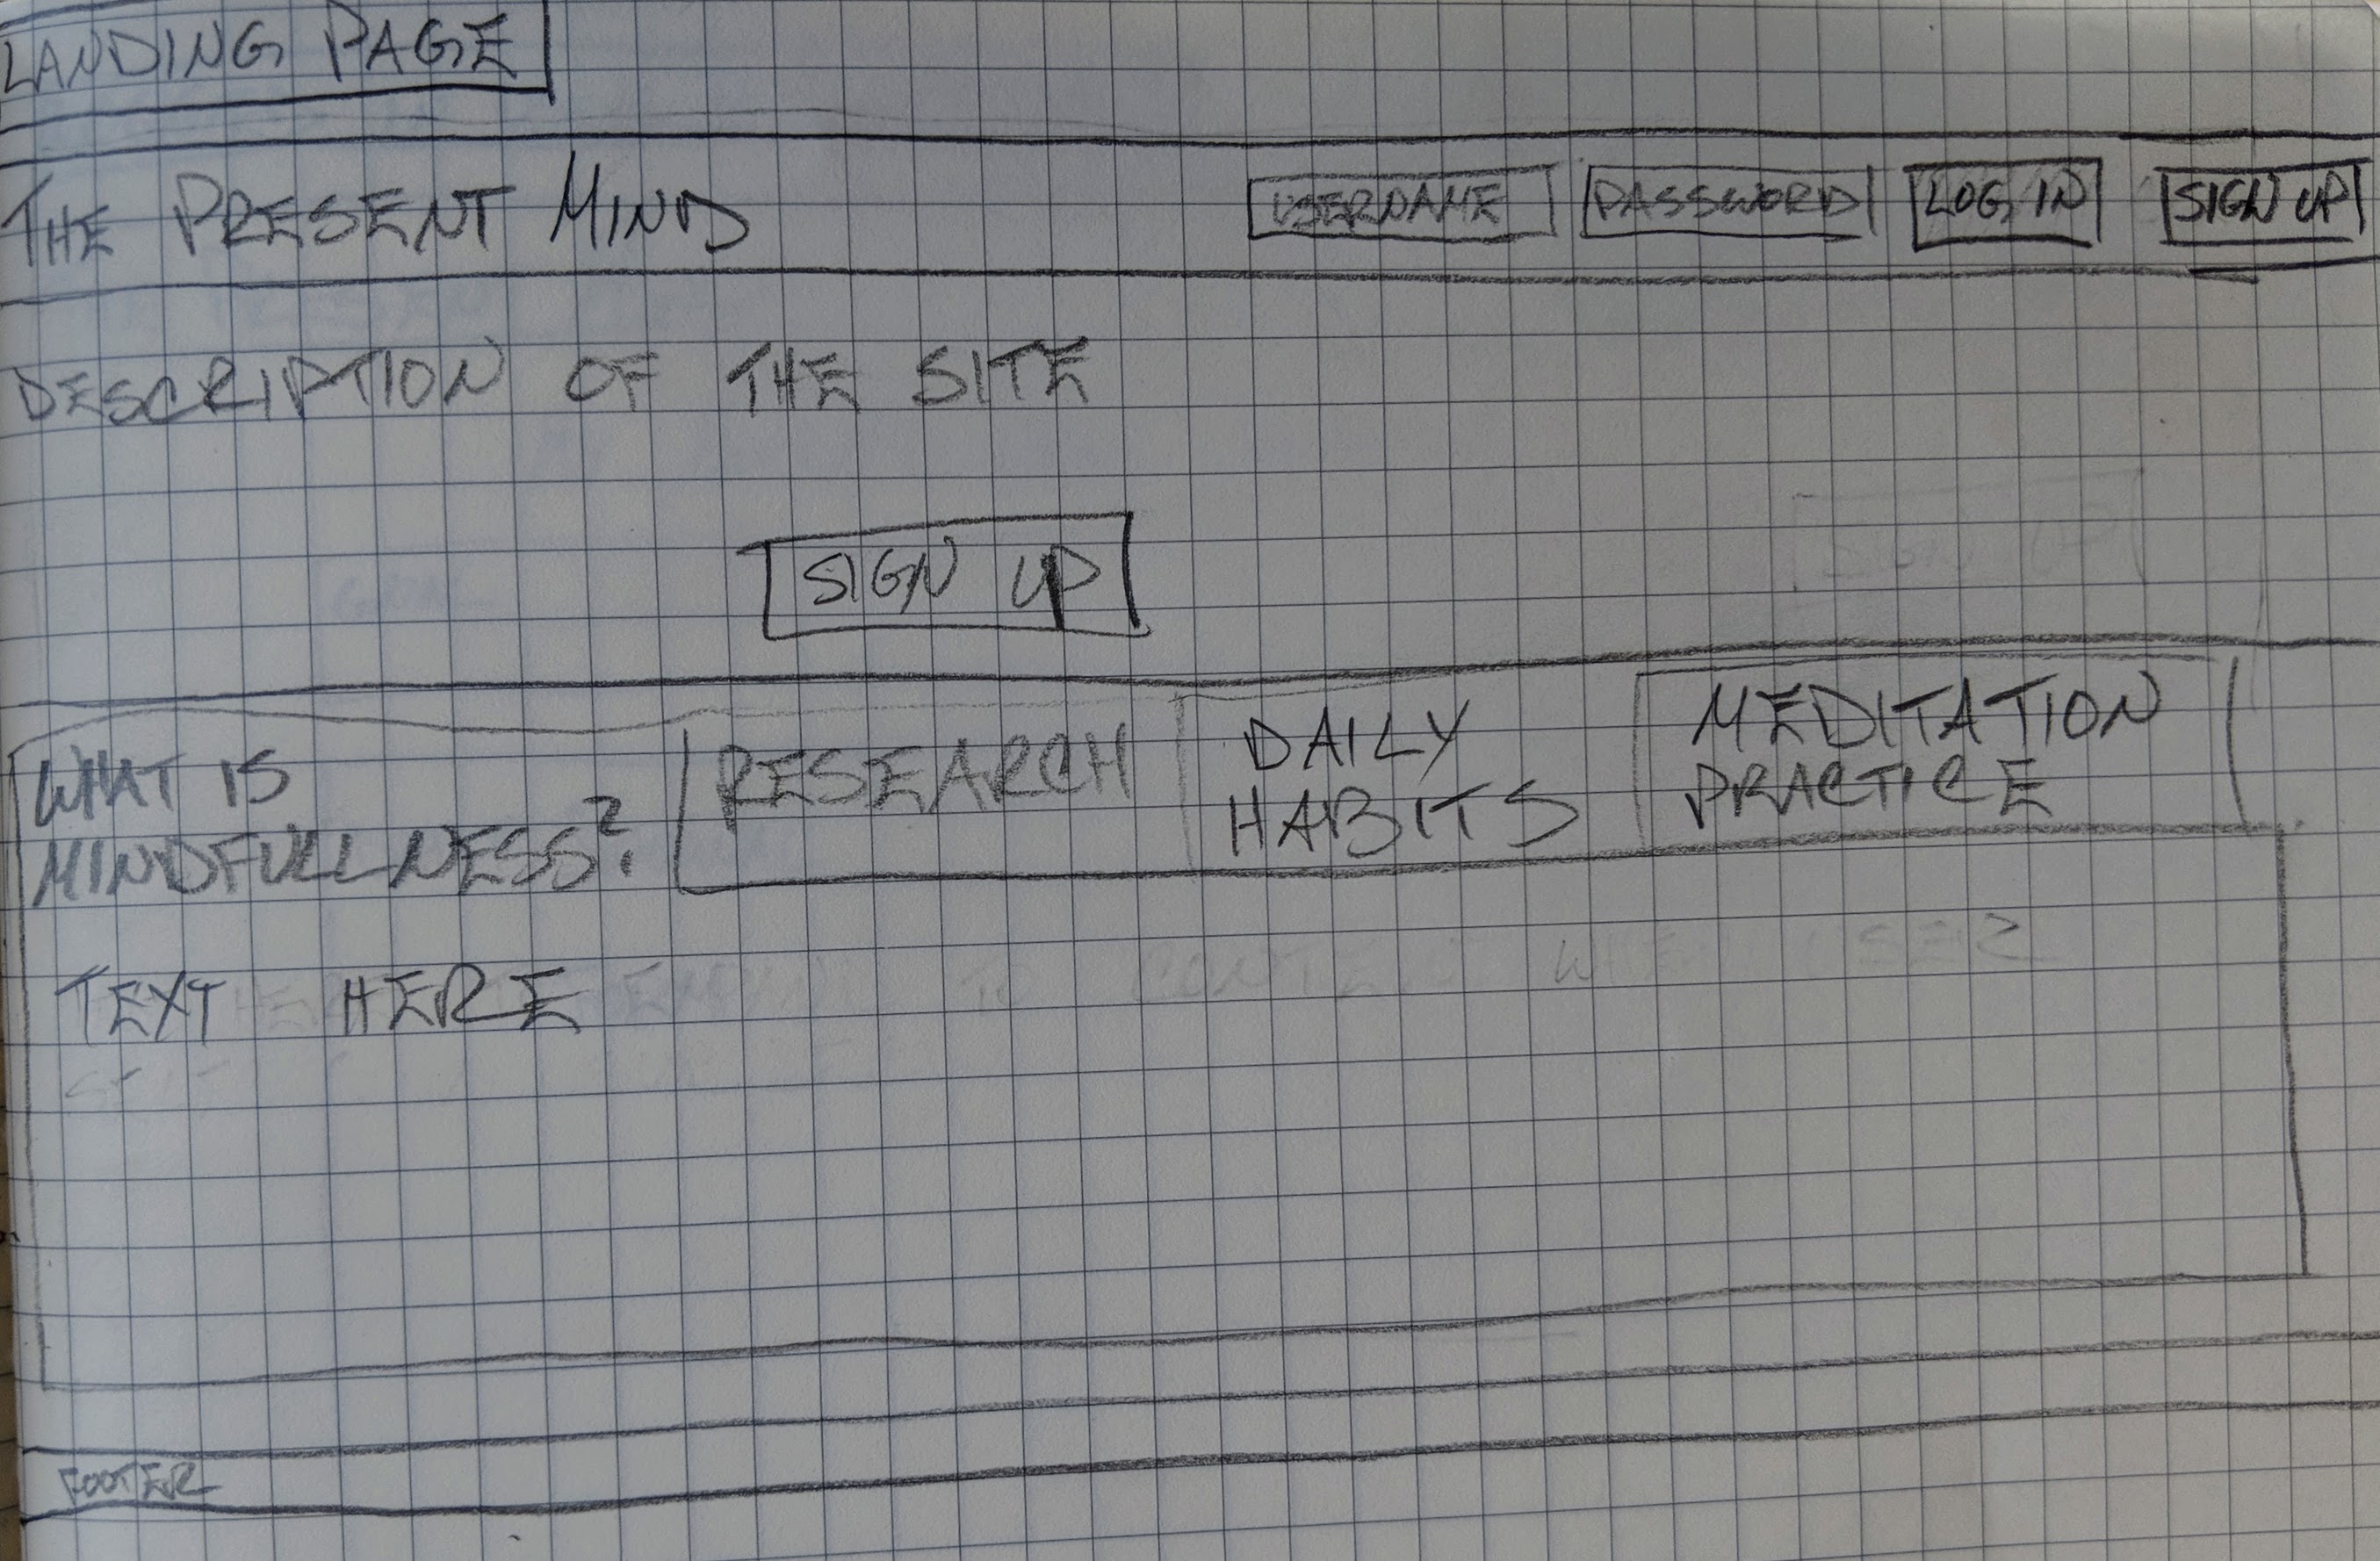 LANDING PAGE
THE PRESENT MIND USERNAME PASSWORD LOG IN SIGN UP
DESCRIPTION OF THE SITE
SIGN UP
WHAT IS
MINDFULLNESS?
RESEARCH
DAILY
HABITS
MEDITATION
PRACTICE
TEXT HERE
FOOTER